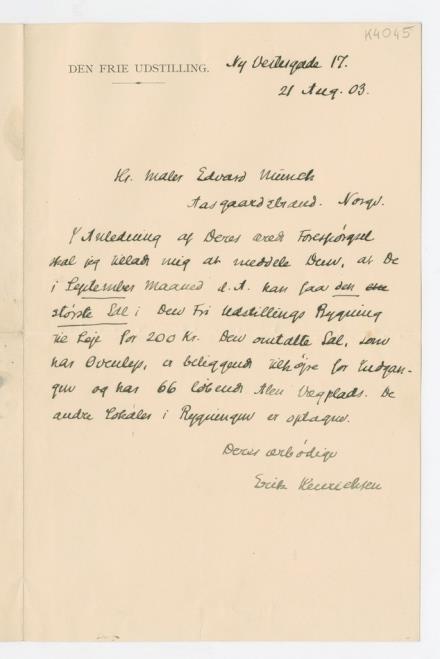 K4045
DEN FRIE UDSTILLING. Ny Vestergade 17.
21 Aug. 03.
Hr. Maler Edvard Munch
Aasgaardstrand. Norge.
I Anledning af Deres ærede Forespørgsel
skal jeg tillade mig at meddele Dem, at De
i September Maaned d. A. kan faa den ene
største Sal i Den Fri Udstillings Bygning
til Leje for 200 Kr. Den omtalte Sal, som
har Ovenlys, er beliggende tilhøjre for Indgan-
gen og har 66 løbende Alen Vægplads. De
andre Lokaler i Bygningen er optagne.
Deres ærbødige
Erik Henrichsen